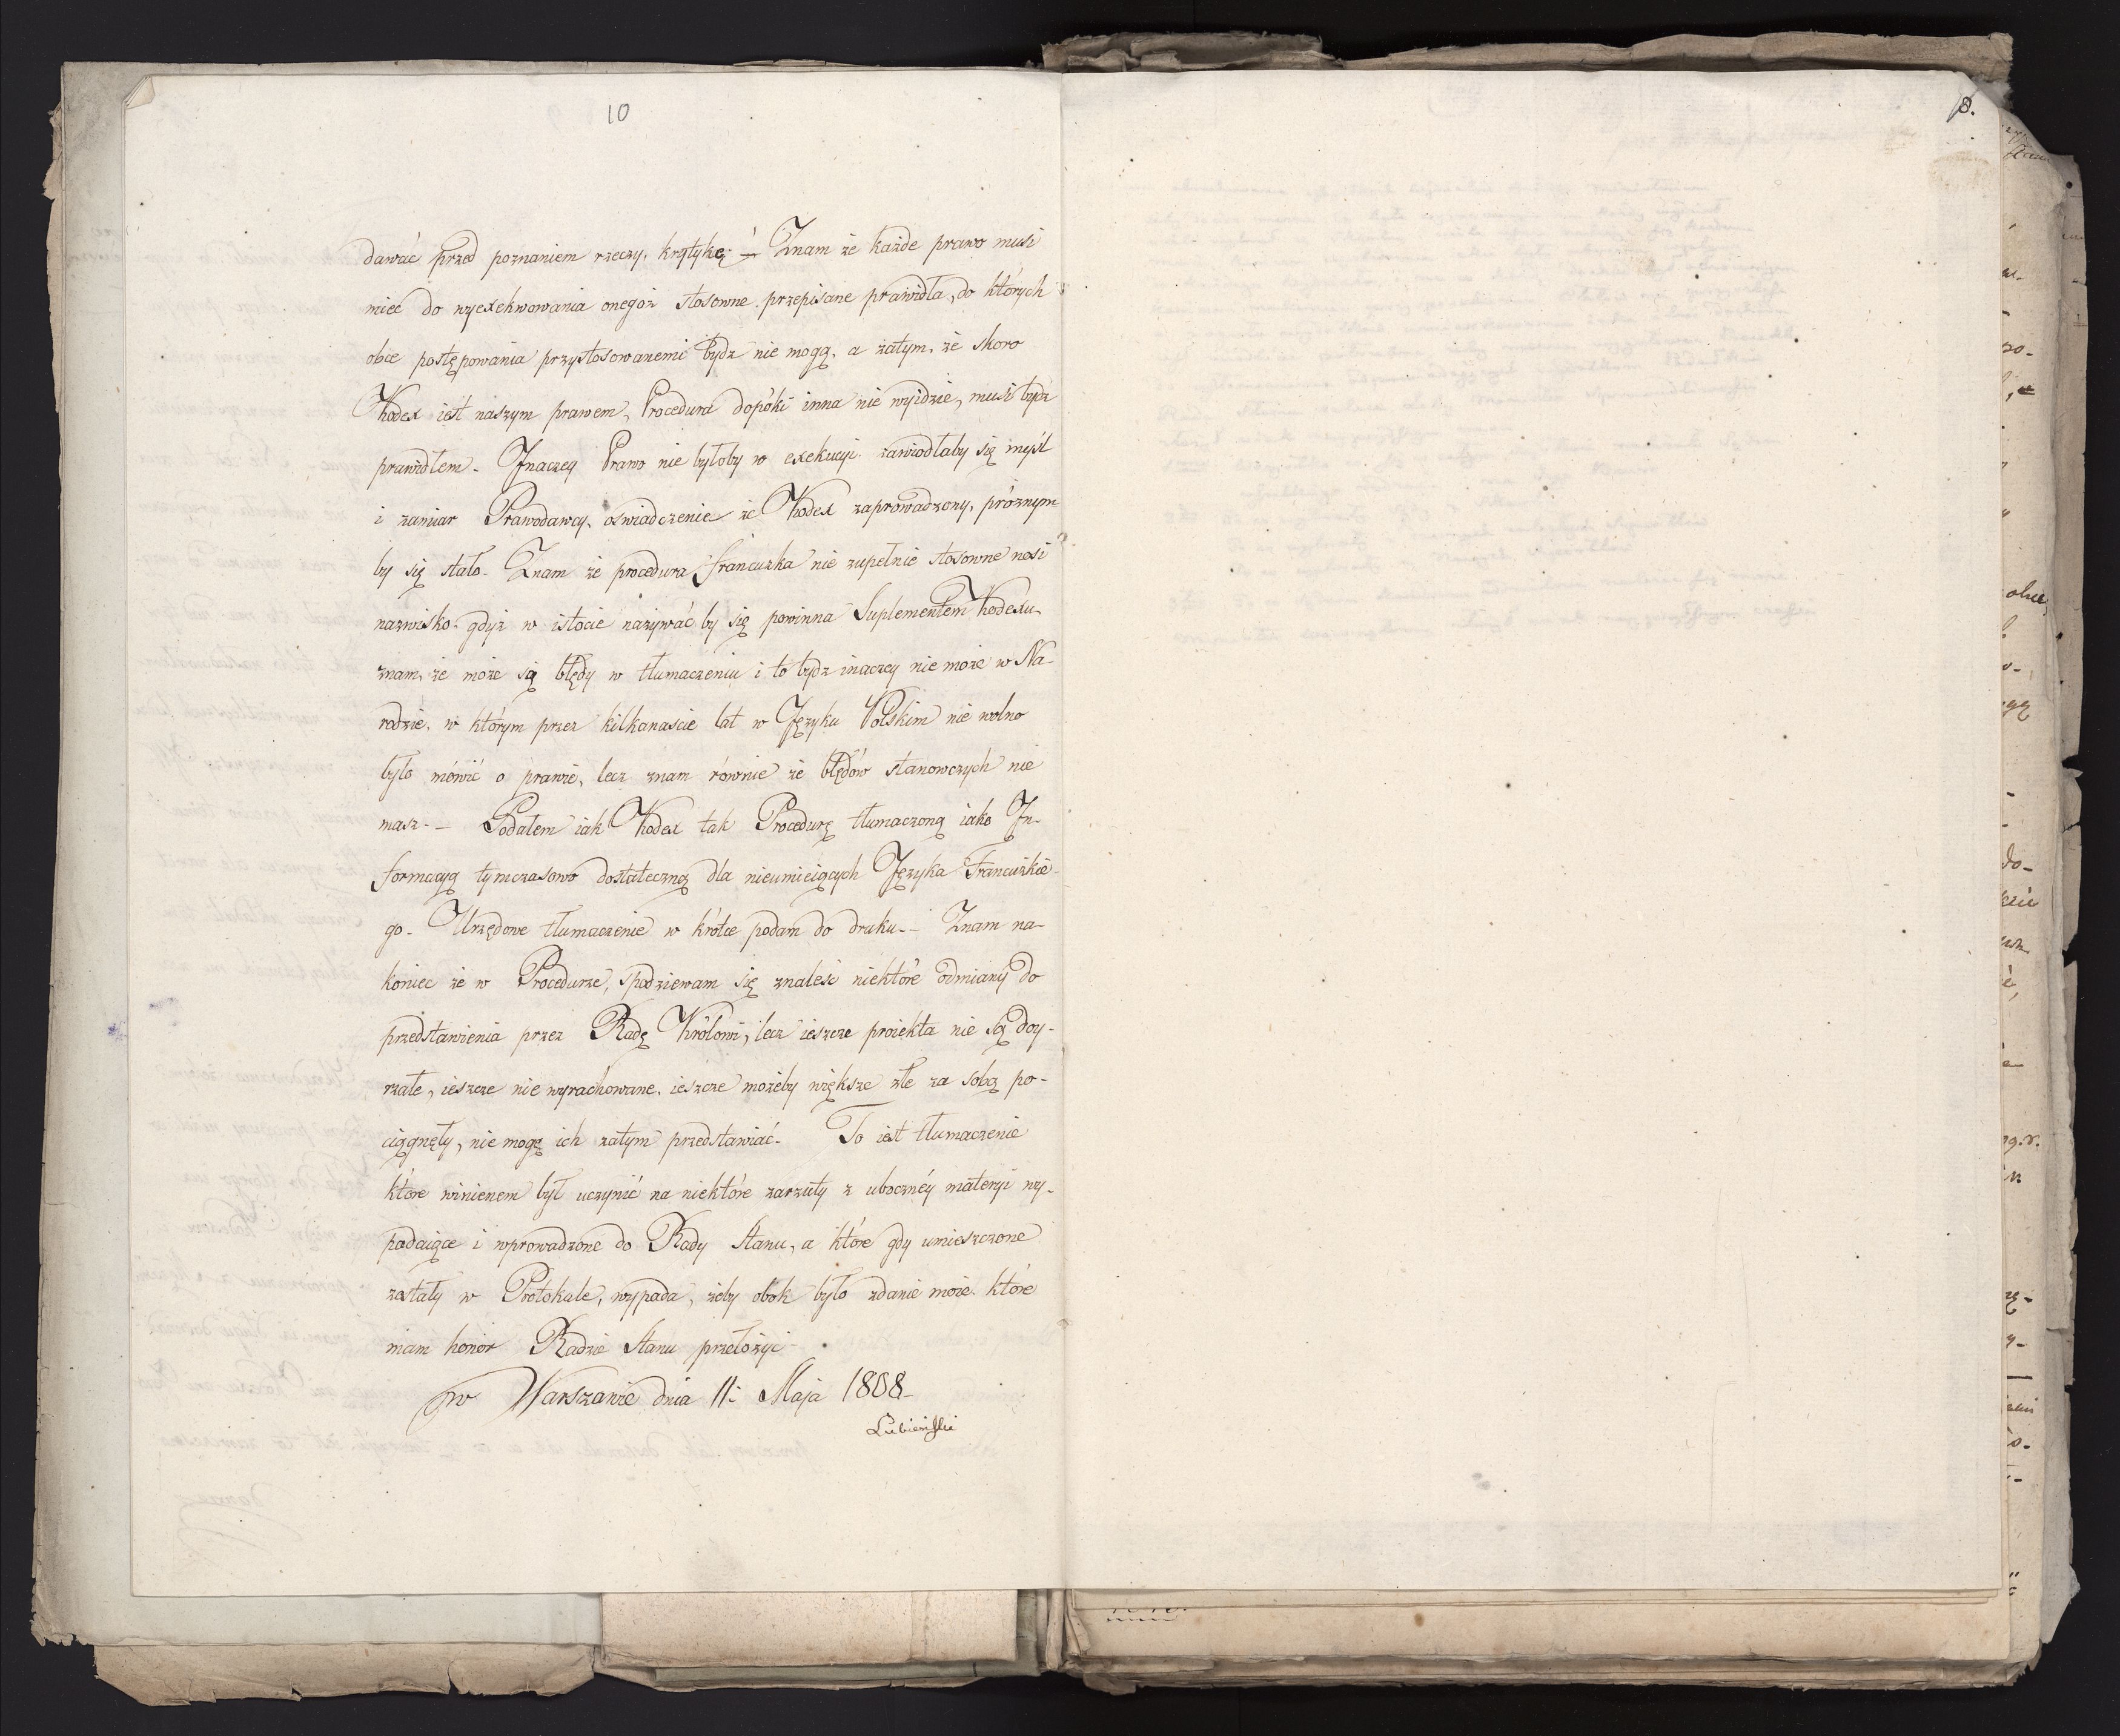 10
dawać przed poznaniem rzeczy, krytykę. — Znam że każde prawo musi
mieć do wyexekwowania onegoż stosowne przepisane prawidła, do których
obce postępowania przystosowanemi bydz nie mogą, a zatym, że skoro
Kodex iest naszym prawem, Procedura dopóki inna nie wyidzie, musi bydź
prawidłem. Jnaczey Prawo nie byłoby w exekucyi. zawiodłaby się myśl
i zamiar Prawodawcy, oswiadczenie że Kodex zaprowadzony, próżnym
by się stało. Znam że procedura francuzka nie zupełnie stosowne nosi
nazwisko. gdyż w istocie nazywać by się powinna Suplementem Kodexu.
znam, że może są błędy w tłumaczeniu i to bydz inaczey nie może w Na-
rodzie, w którym przez kilkanascie lat w Języku Polskim nie wolno
było mówić o prawie, lecz znam równie że błędów stanowczych nie
masz. — Podałem iak Kodex tak Procedurę tłumaczoną iako Jn-
formacyą tymczasowo dostateczną dla nieumieiących Języka Francuzkie-
go. Urzędowe tłumaczenie w krótce podam do druku. — Znam na-
koniec że w Procedurze, spodziewam się znalesć niektóre odmiany do
przedstawienia przez Radę Królowi, lecz ieszcze proiekta nie są doy-
rzałe, ieszcze nie wyrachowane, ieszcze możeby większe złe za sobą po-
ciągnęły, nie mogę ich zatym przedstawiać. To iest tłumaczenie
które winienem był uczynić na niektóre zarzuty z ubocznéy materyi wy-
padaiące i wprowadzone do Rady Stanu, a które gdy umieszczone
zostały w Protokule, wypada, żeby obok było zdanie moie. które
mam honor Radzie Stanu przełożyć
w Warszawie dnia 11. Maja 1808.
Lubieński
8.